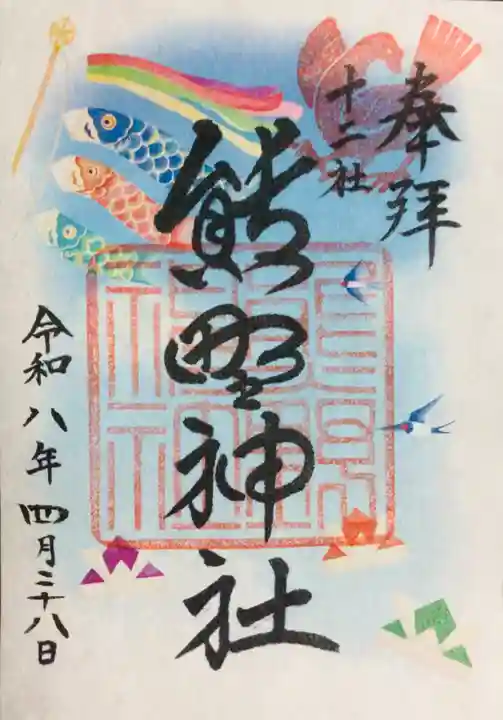 奉拝
十二社
熊野神社
令和八年四月二十八日